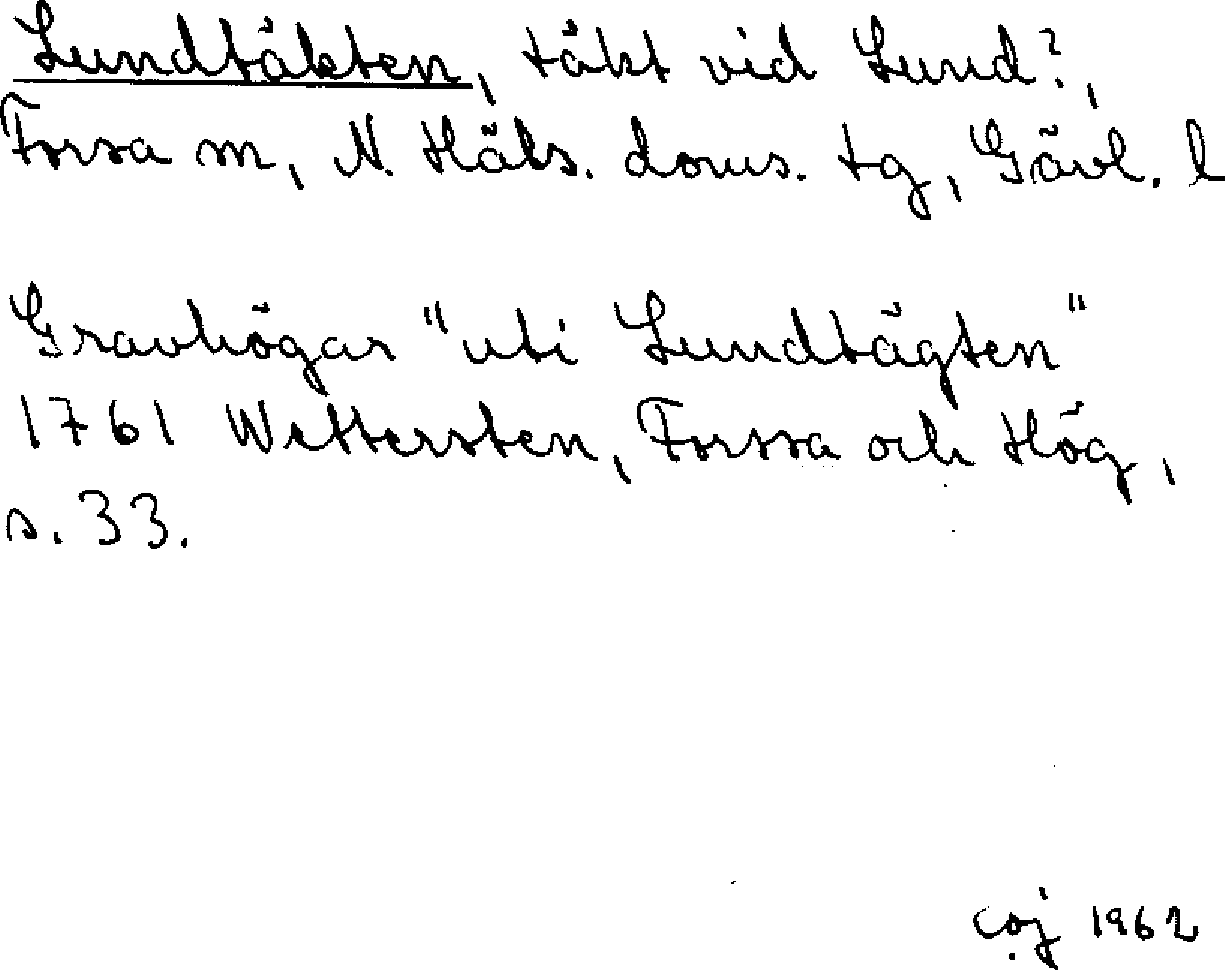 Lundtäkten, täkt vid Lund?,
Forsa sn, N. Häls. doms. tg, Gävl. l
Gravhögar "uti Lundtägten"
1761 Wettersten, Forssa och Hög,
s. 33.
coj 1962